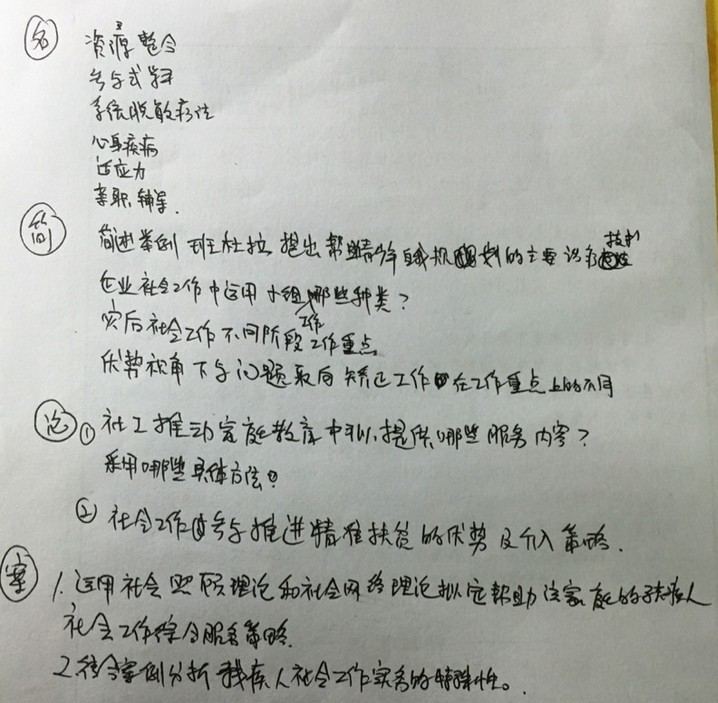 名 资源整合
参与式学习
系统脱敏疗法
心身疾病
适应力
亲职辅导.
简 简述举例 班杜拉 提出 帮助 自我规划的主要 技术
企业社会工作中运用小组哪些种类?
灾后社会工作不同阶段工作重点
优势视角下与问题视角矫正工作在工作重点上的不同
论 ① 社工推动家庭教育中可以提供哪些服务内容?
采用哪些具体方法?
② 社会工作参与推进精准扶贫的优势及介入策略.
案 1.运用社会照顾理论和社会网络理论拟定帮助该家庭的残疾人
社会工作综合服务策略.
2.结合案例分析残疾人社会工作实务的特殊性。